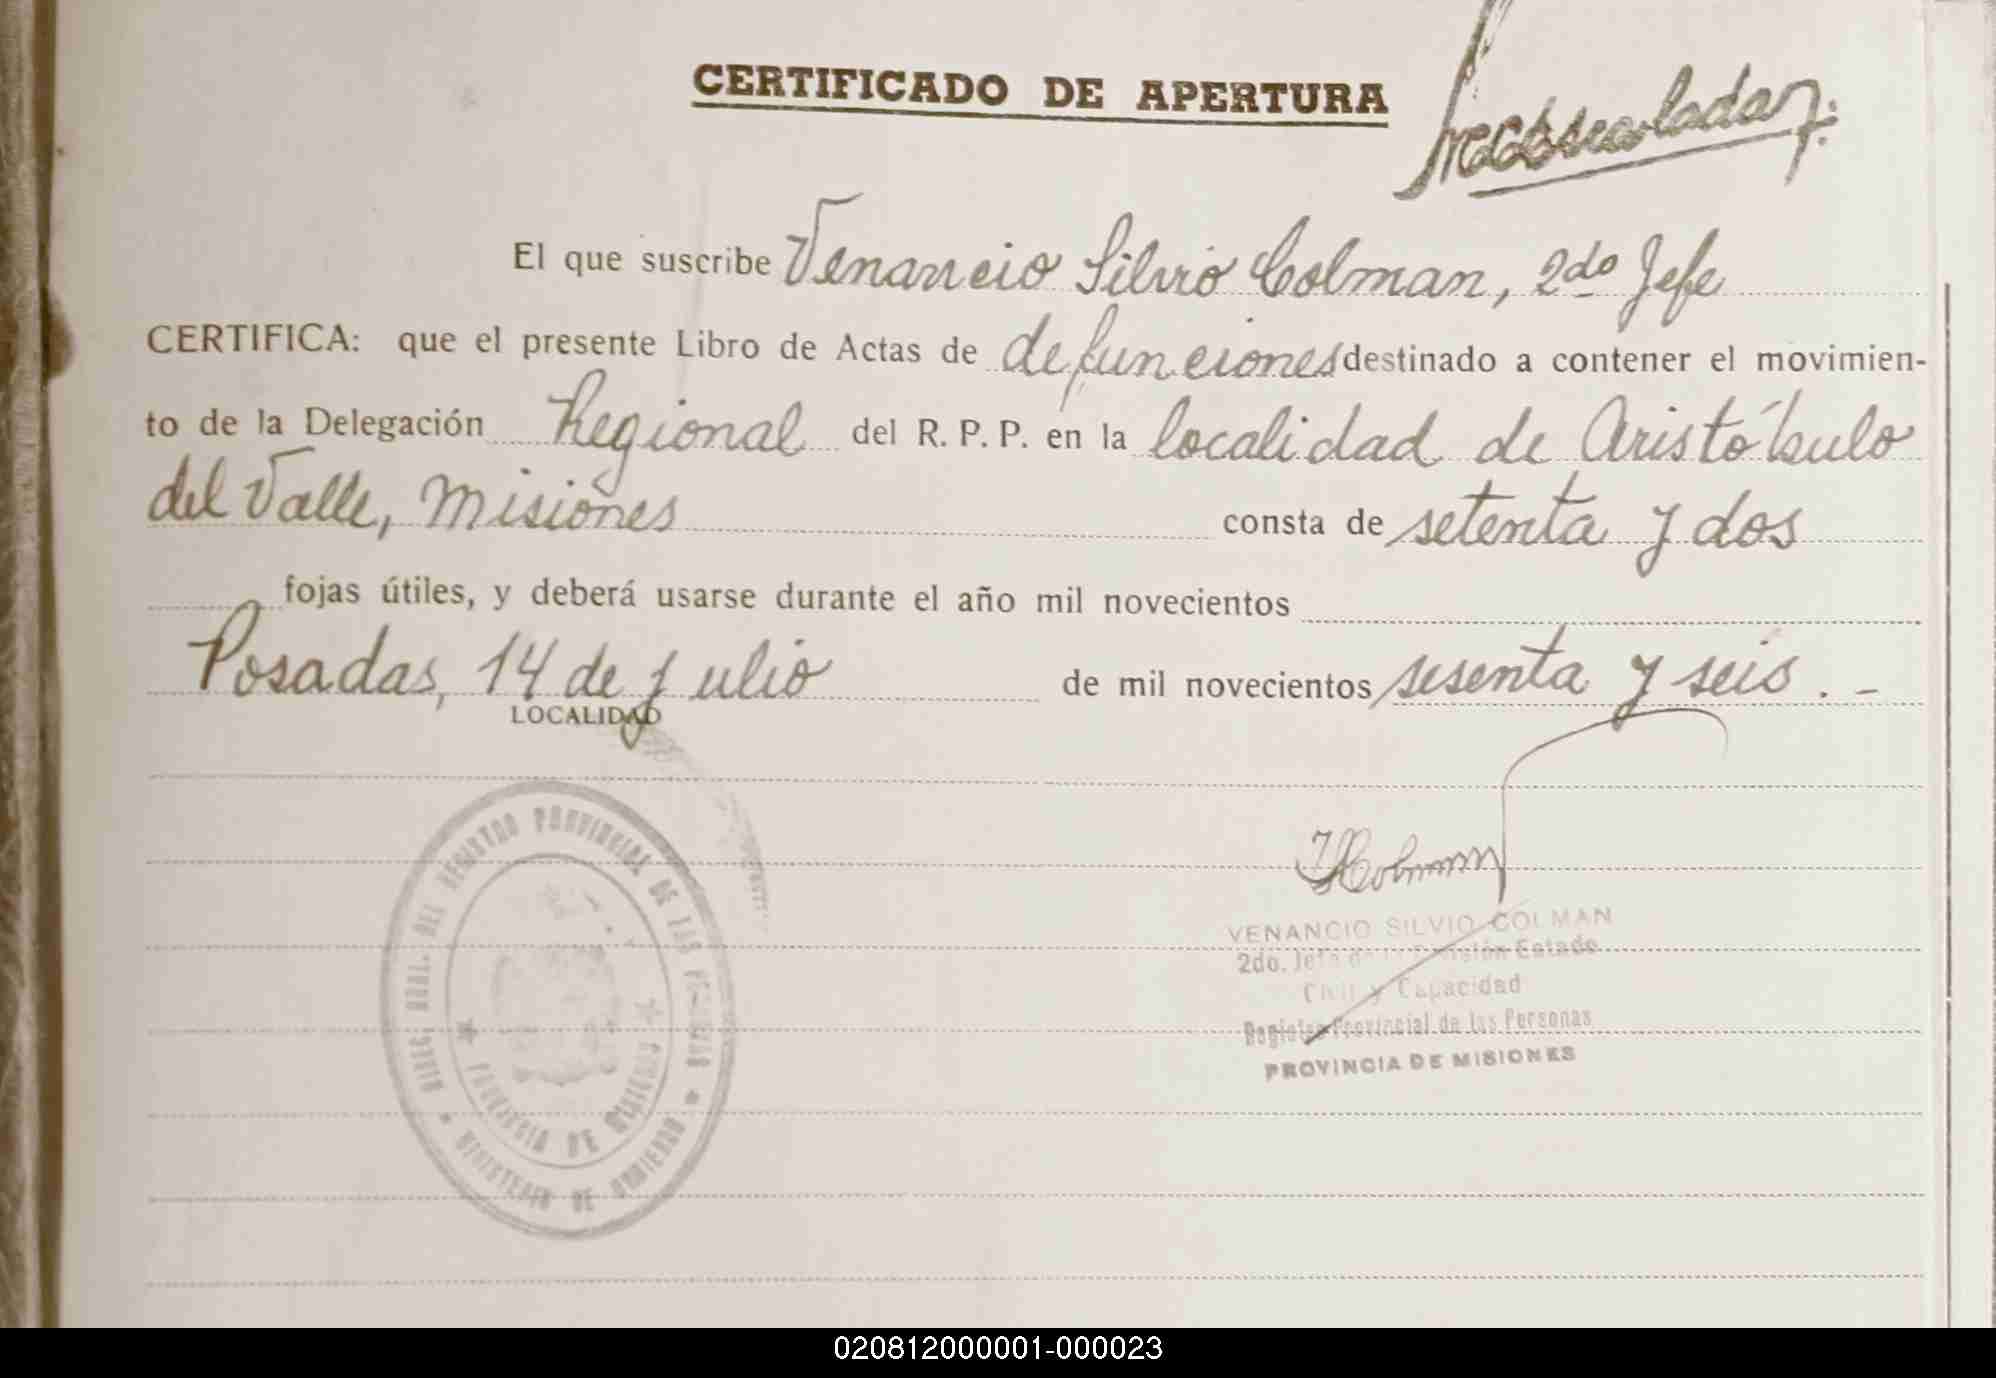 CERTIFICADO DE APERTURA
El que suscribe Venancio Silvio Colman, 2do Jefe
CERTIFICA: que el presente Libro de Actas de defunciones destinado a contener el movimien-
to de la Delegación Regional del R. P. P. en la localidad de Aristóbulo
del Valle, Misiones consta de setenta y dos
fojas útiles, y deberá usarse durante el año mil novecientos
Posadas, 14 de julio de mil novecientos sesenta y seis . -
LOCALIDAD
DIREC. GRAL. DEL REGISTRO PROVINCIAL DE LAS PERSONAS
PROVINCIA DE MISIONES
MINISTERIO DE GOBIERNO
VColman
VENANCIO SILVIO COLMAN
2do. Jefe de la División Estado
Civil y Capacidad
Registro Provincial de las Personas
PROVINCIA DE MISIONES
020812000001-000023